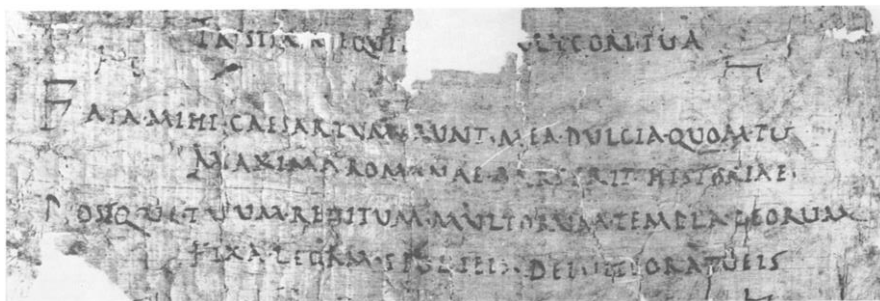 TRISTIA · NEQVIT A · LYCORI · TVA
FATA · MIHI · CAESAR · TVM · ERVNT · MEA · DVLCIA · QVOM · TV
MAXIMA · ROMANAE · PARS · ERIT · HISTORIAE
POSTQVE · TVVM · REDITVM · MVLTORVM · TEMPLA · DEORVM
FIXA · LEGAM · SPOLIEIS · DEIVITIORA · TVEIS